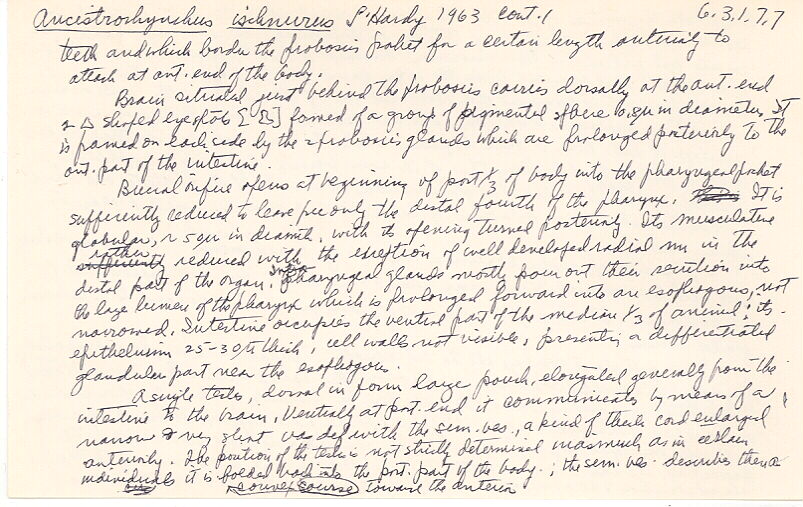 Ancistrorhynchus ischnurus L'Hardy 1963 cont. 1 6.3.1.77
teeth and which border the proboscis pocket for a certain length anteriorly to
attach at ant. end of the body.
Brain situated just behind the proboscis carries dorsally at the ant. end
2 shaped eyespots formed of a group of pigmented sphere 0.8µ in diameter. It
is framed on each side by the 2 proboscis glands which are prolonged posteriorly to the
ant. part of the intestine.
Buccal orifice opens at beginning of post 1/3 of body into the pharyngeal pocket
sufficiently reduced to leave free only the distal fourth of the pharynx. It is
globular, ~ 50µ in diameter, with its opening turned posteriorly. Its musculature
rather reduced with the exception of well developed radial mm in the
distal part of the organ. pharyngeal glands pour out their secretion into
the large lumen of the pharynx which is prolonged forward into an esophagous, not
narrowed. Intestine occupies the ventral part of the median 1/3 of animal; its
epithelium 25-30µ thick, cell walls not visible, presenting a differentiated
glandular part near the esophagous.
A single testis, dorsal in form large pouch, elongated generally from the
intestine to the brain. Ventrally at post. end it communicates by means of a
narrow & very short vas def with the sem. ves., a kind of thick cord enlarged
anteriorly. The position of the testis is not strictly determined inasmuch as in certain
individuals it is folded back into the post. part of the body; the sem. ves. describes then a
convex course toward the anterior